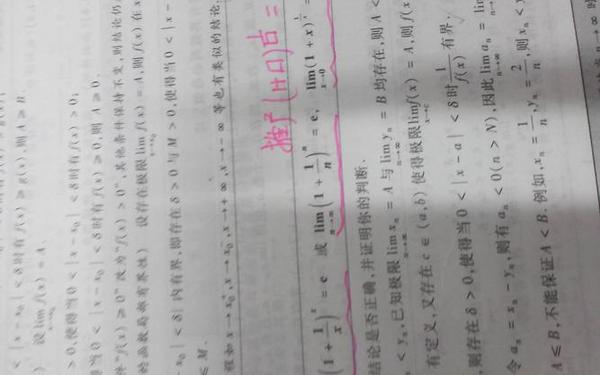 < | x - x₀ | < δ 时有 f(x) ≥ g(x), 则 A ≥ B.
) 设 lim f(x) = A.
> 0, 使得当 0 < | x - x₀ | < δ 时有 f(x) > 0;
得当 0 < | x - x₀ | < δ 时有 f(x) ≥ 0, 则 A ≥ 0.
件 "f(x) ≥ 0" 改为 "f(x) > 0", 其他条件保持不变, 则结论仍
的函数局部有界性) 设存在极限 lim f(x) = A, 则 f(x) 在 x
x→x₀
- x₀ | < δ} 内有界, 即存在 δ > 0 与 M > 0, 使得当 0 < | x -
≤ M.
程如 x→x₀⁺, x→x₀⁻, x→+∞, x→-∞ 等也有类似的结论.
推广 (1+口)
(1 + 1/x)ˣ = e 或 lim (1 + 1/n)ⁿ = e, lim (1 + x)^(1/x) =
n→∞ x→0
结论是否正确, 并证明你的判断.
< yₙ, 已知极限 lim xₙ = A 与 lim yₙ = B 均存在, 则 A <
n→∞ n→∞
有定义, 又存在 c ∈ (a, b) 使得极限 lim f(x) = A, 则 f(x
x→c
, 则存在 δ > 0, 使得当 0 < | x - a | < δ 时 1/f(x) 有界.
令 aₙ = xₙ - yₙ, 则有 aₙ < 0 (n > N), 因此 lim aₙ = lim
n→∞ n→∞
A ≤ B, 不能保证 A < B. 例如, xₙ = 1/n, yₙ = 2/n, 则 xₙ < y